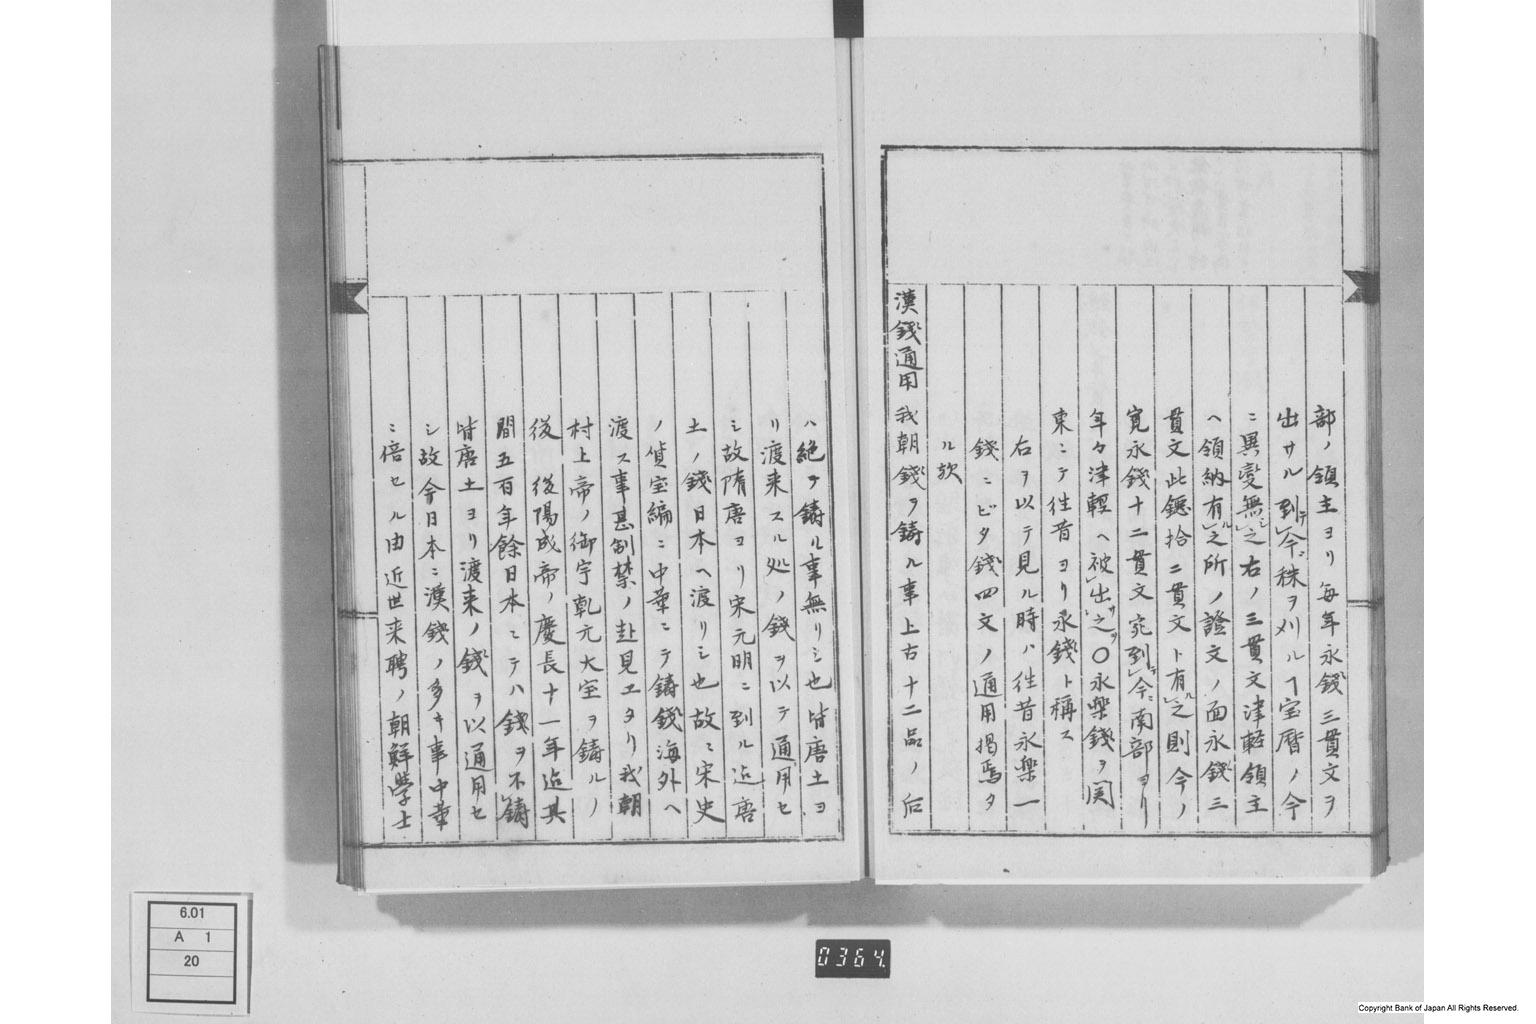 部ノ領主ヨリ毎年永錢三貫文ヲ
出サル到テ今ニ秣ヲ刈ルヿ宝暦ノ今
ニ異変無之右ノ三貫文津軽領主
ヘ領納有ル之所ノ證文ノ面永錢三
貫文此鐚拾二貫文ト有ル之則今ノ
寛永錢十二貫文宛到テ今ニ南部ヨリ
年々津輕ヘ被出サ之ヲ〇永樂錢ヲ関
東ニテ往昔ヨリ永錢ト稱ス
右ヲ以テ見ル時ハ往昔永樂一
錢ニビタ錢四文ノ通用掲焉タ
ル欤
漢錢通用 我朝錢ヲ鋳ル事上古十二品ノ后
ハ絶テ鋳ル事無リシ也皆唐土ヨ
リ渡来スル処ノ錢ヲ以テ通用セ
シ故隋唐ヨリ宋元明ニ到ル迄唐
土ノ錢日本ヘ渡リシ也故ニ宋史
ノ貨室編ニ中華ニテ鋳錢海外ヘ
渡ス事甚制禁ノ赴見エタリ我朝
村上帝ノ御宇乾元大宝ヲ鋳ルノ
後 後陽成帝ノ慶長十一年迄其
間五百年餘日本ニテハ錢ヲ不鋳
皆唐土ヨリ渡来ノ錢ヲ以通用セ
シ故今日本ニ漢錢ノ多キ事中華
ニ倍セル由近世来聘ノ朝鮮學士
6.01
A 1
20
0364.
Copyright Bank of Japan All Rights Reserved.